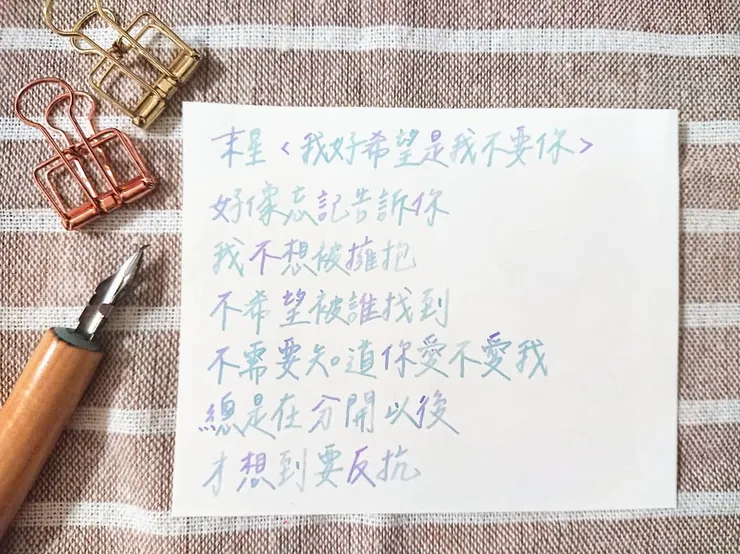 末星〈我好希望是我不要你〉
好像忘記告訴你
我不想被擁抱
不希望被誰找到
不需要知道你愛不愛我
總是在分開以後
才想到要反抗